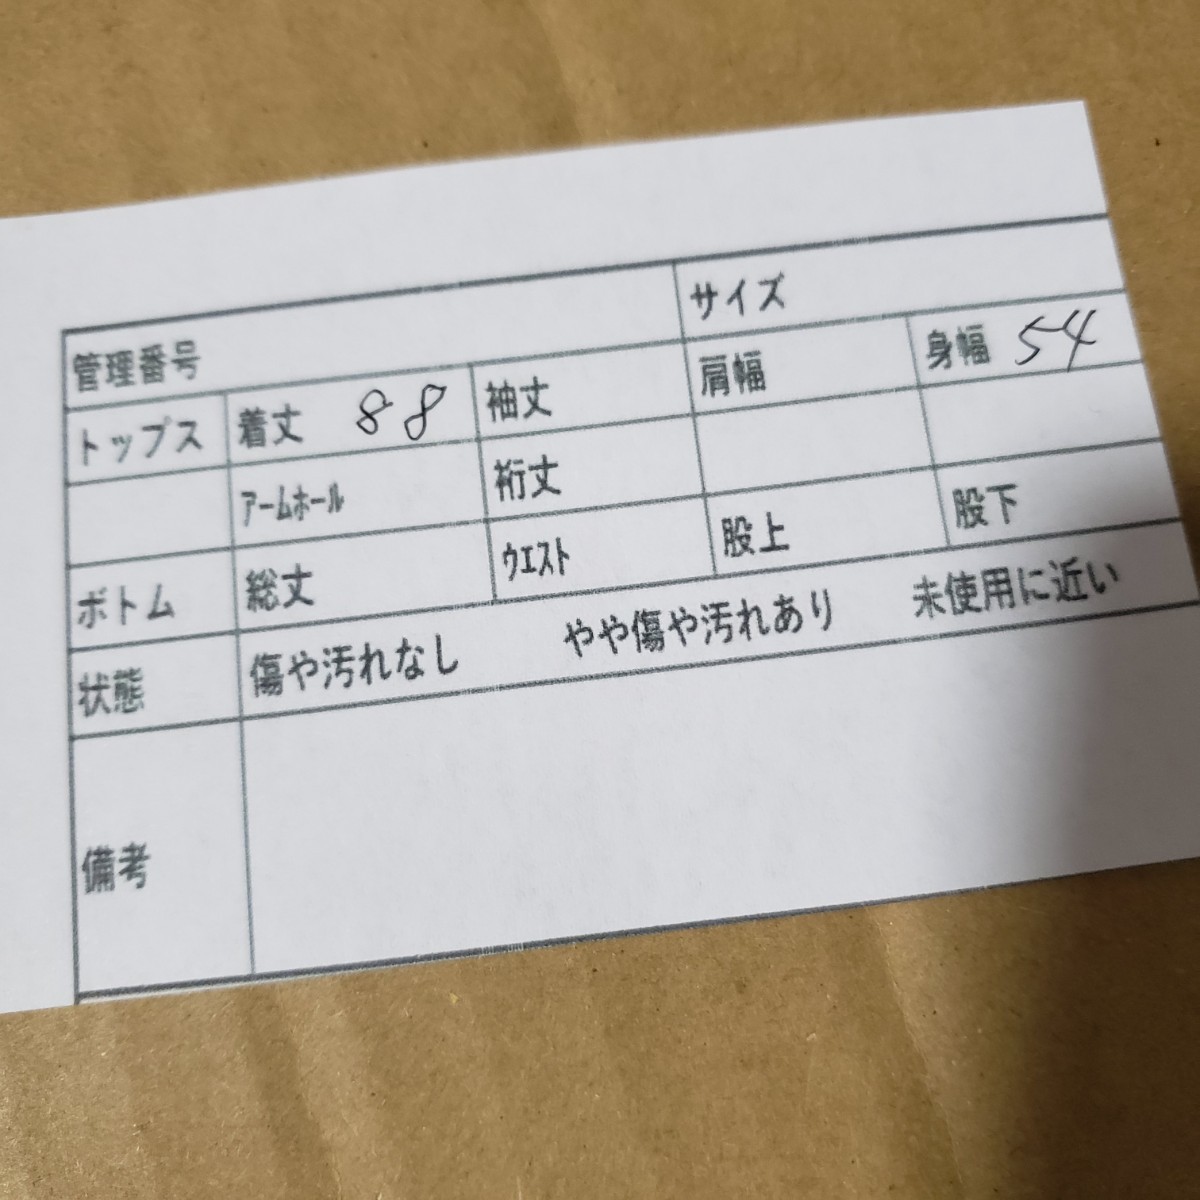 管理番号 サイズ
トップス 着丈 88 袖丈 肩幅 身幅 54
アームホール 裄丈
ボトム 総丈 ウエスト 股上 股下
状態 傷や汚れなし やや傷や汚れあり 未使用に近い
備考